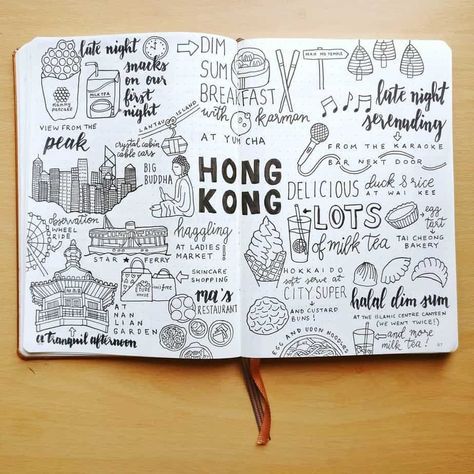 late night
snacks
on our
first
night
MILK TEA
mummy
pancake
VIEW FROM THE
peak
LANTAU ISLAND
crystal cabin
cable cars
BIG
BUDDHA
observation
WHEEL
RIDE
STAR FERRY
haggling
AT LADIES
MARKET
SKINCARE
SHOPPING
AT
NAN
LIAN
GARDEN
a tranquil afternoon
ma's
RESTAURANT
DIM
SUM
BREAKFAST
with karman
AT YUM CHA
HONG
KONG
MAN MO TEMPLE
late night
serenading
FROM THE KARAOKE
BAR NEXT DOOR
DELICIOUS duck & rice
AT WAI KEE
LOTS
of milk tea
egg
tart
TAI CHEONG
BAKERY
HOKKAIDO
soft serve at
CITY SUPER
AND CUSTARD
BUNS!
EGG AND UDON NOODLES
halal dim sum
AT THE ISLAMIC CENTRE CANTEEN
(WE WENT TWICE!)
and more
milk tea!